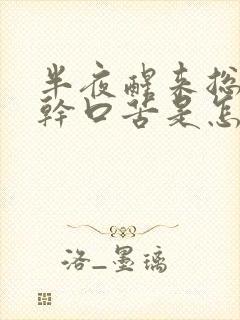 半夜醒来总
幹口苦是怎
洛_墨璃